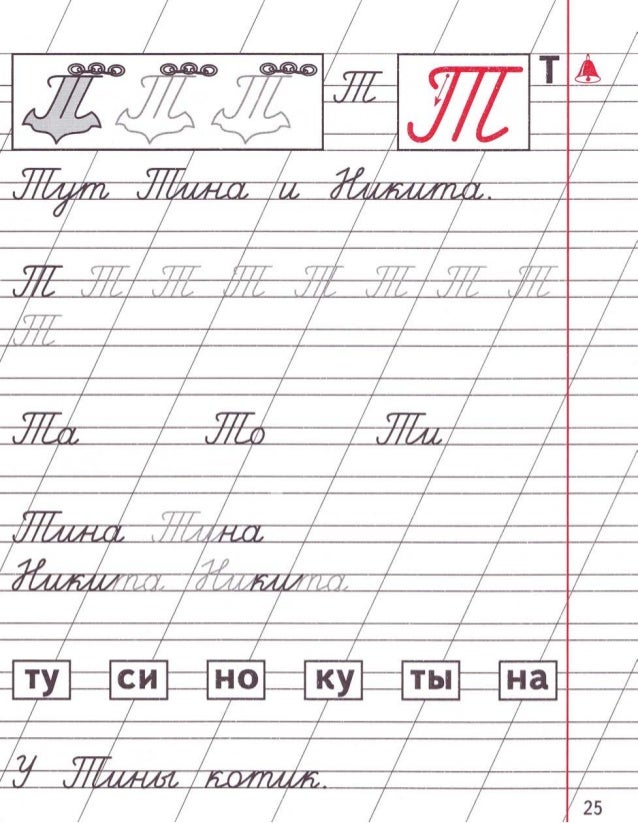 Т Т Т Т Т Т
Тут Тина и Никита.
Т Т Т Т Т Т Т Т
Т
Та То Ти
Тина Тина
Никита Никита
ту си но ку ты на
У Тины котик.
25